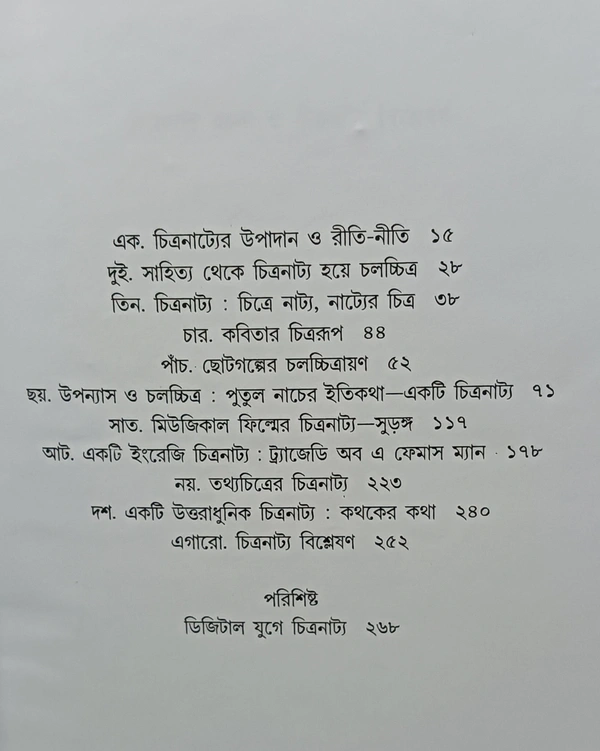 এক. চিত্রনাট্যের উপাদান ও রীতি-নীতি ১৫
দুই. সাহিত্য থেকে চিত্রনাট্য হয়ে চলচ্চিত্র ২৮
তিন. চিত্রনাট্য : চিত্রে নাট্য, নাট্যের চিত্র ৩৮
চার. কবিতার চিত্ররূপ ৪৪
পাঁচ. ছোটগল্পের চলচ্চিত্রায়ণ ৫২
ছয়. উপন্যাস ও চলচ্চিত্র : পুতুল নাচের ইতিকথা—একটি চিত্রনাট্য ৭১
সাত. মিউজিকাল ফিল্মের চিত্রনাট্য—সুড়ঙ্গ ১১৭
আট. একটি ইংরেজি চিত্রনাট্য : ট্র্যাজেডি অব এ ফেমাস ম্যান ১৭৮
নয়. তথ্যচিত্রের চিত্রনাট্য ২২৩
দশ. একটি উত্তরাধুনিক চিত্রনাট্য : কথকের কথা ২৪০
এগারো. চিত্রনাট্য বিশ্লেষণ ২৫২
পরিশিষ্ট
ডিজিটাল যুগে চিত্রনাট্য ২৬৮